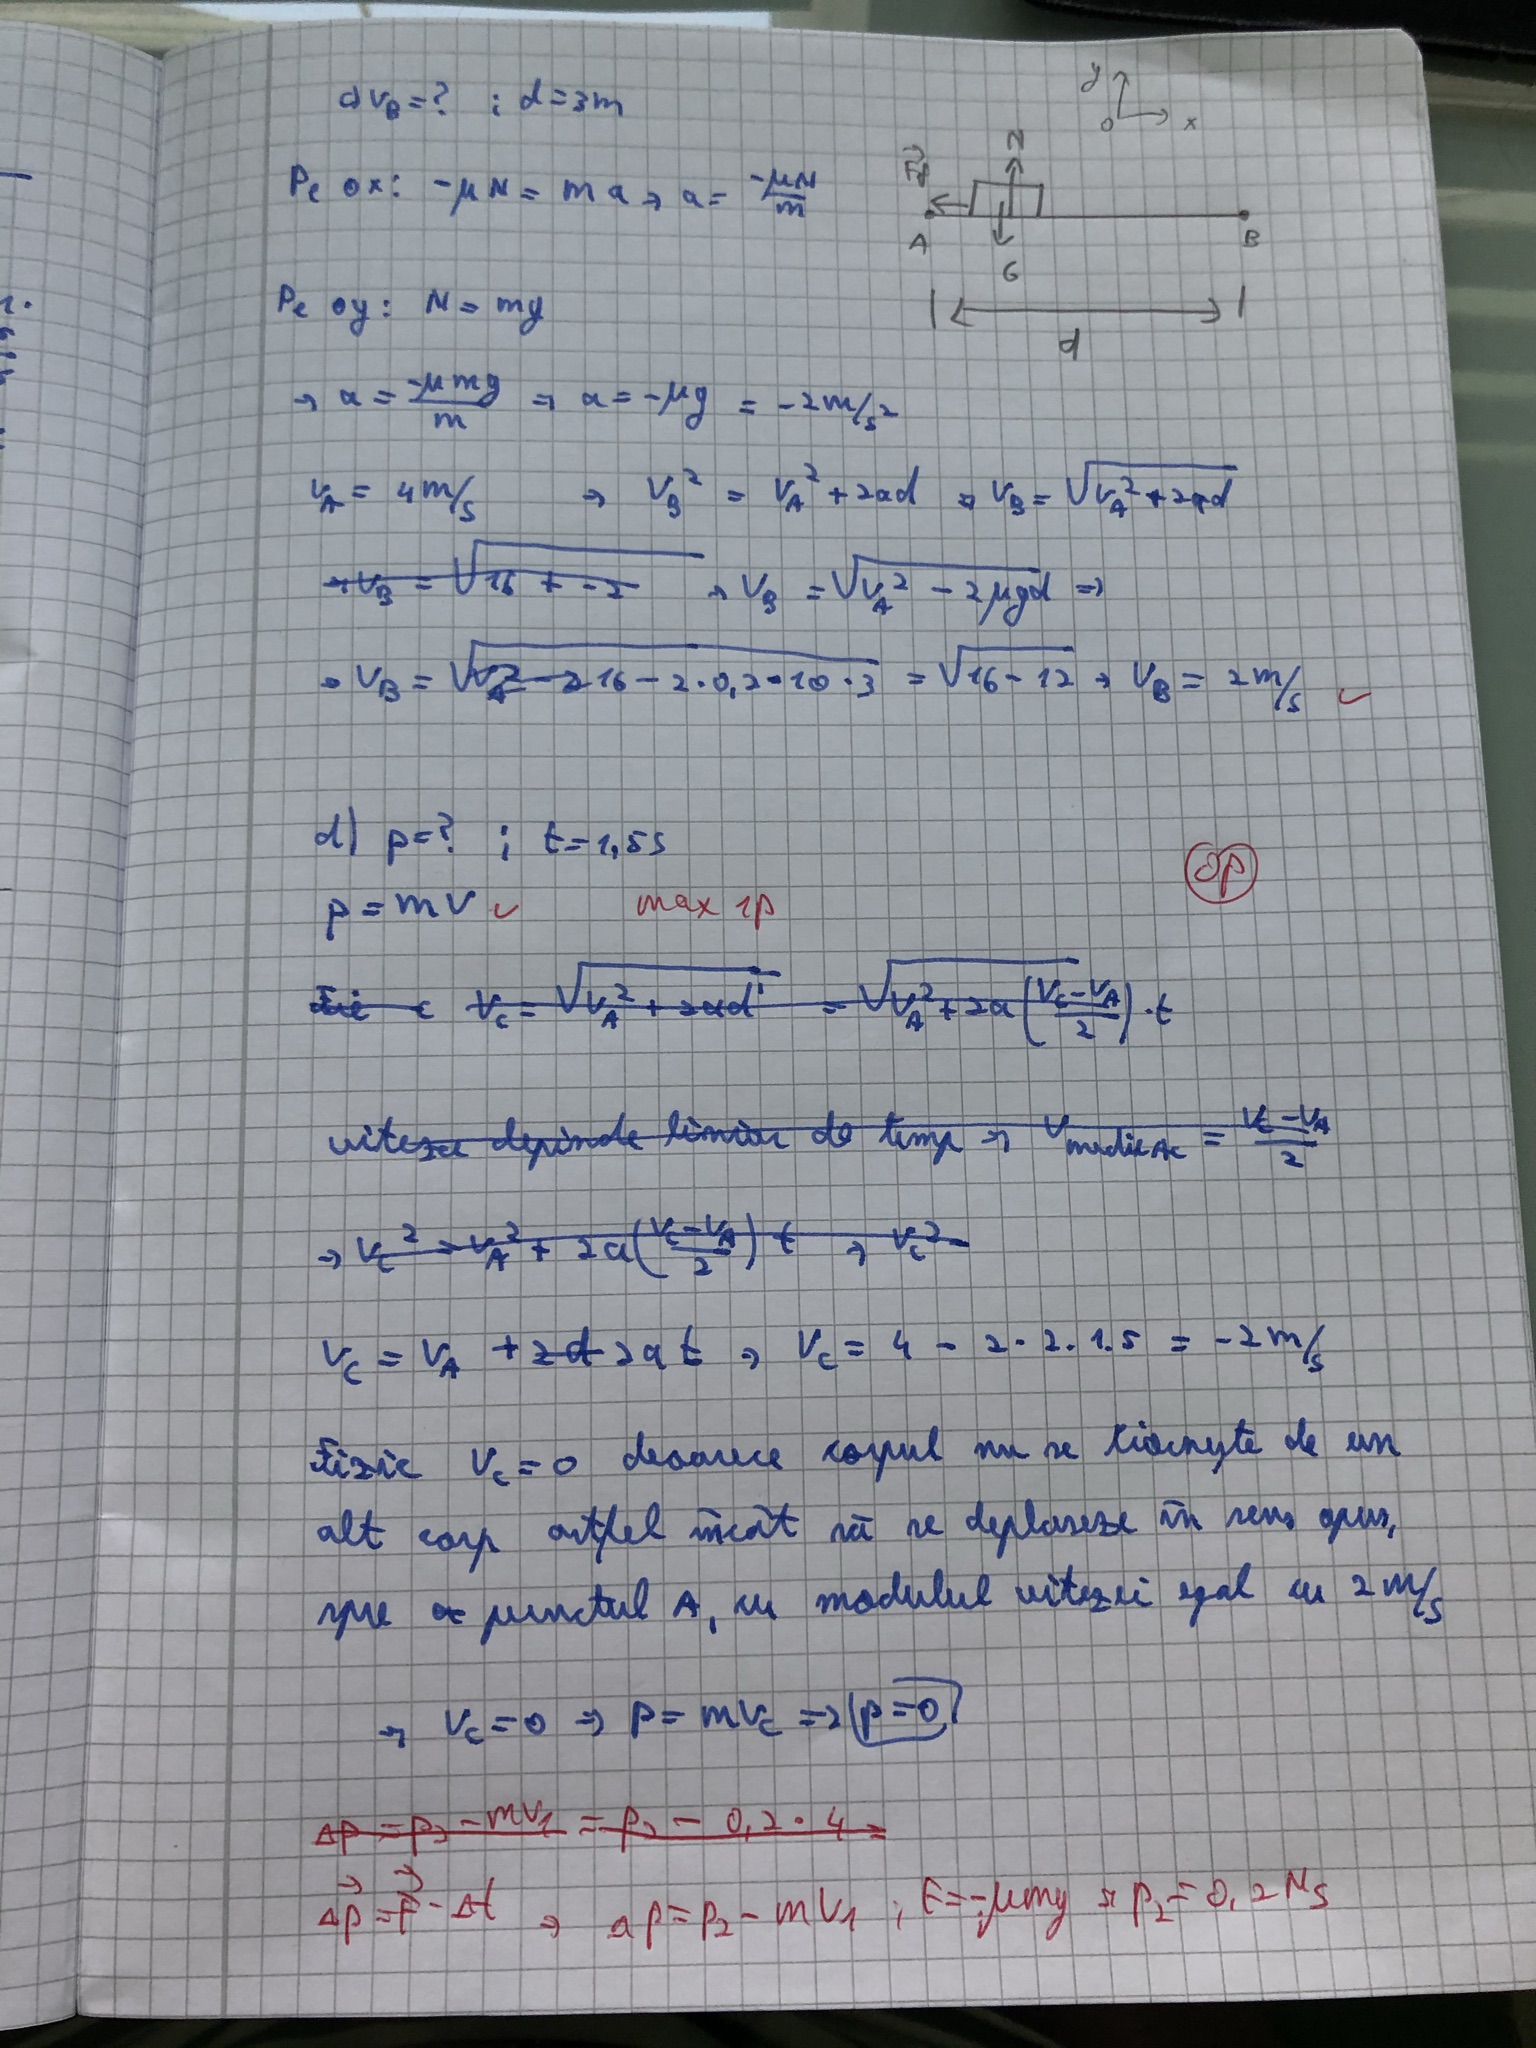 c) v_B = ? ; d = 3m
y
O x
Pe ox: -μN = ma → a = -μN/m
F_f N
A B
G
Pe oy: N = mg
d
→ a = -μmg/m → a = -μg = -2m/s²
v_A = 4m/s → v_B² = v_A² + 2ad → v_B = √(v_A² + 2ad)
→ v_B = √(16 + -2 → v_B = √(v_A² - 2μgd) ⇒
→ v_B = √(v_A² - 2 16 - 2·0,2·10·3) = √(16-12) → v_B = 2m/s ✓
d) p = ? ; t = 1,5s
0p
p = mv ✓ max 1p
Fie c v_C = √(v_A² + 2ad') = √(v_A² + 2a((v_C - v_A)/2)·t
viteza depinde liniar de timp → v_medie AC = (v_C - v_A)/2
→ v_C² = v_A² + 2a((v_C - v_A)/2) t → v_C²
v_C = v_A + 2d 2at → v_C = 4 - 2·2·1.5 = -2m/s
Fizic v_C = 0 deoarece corpul nu se ciocnește de un
alt corp astfel încât să se deplaseze în sens opus,
spre punctul A, cu modulul vitezei egal cu 2m/s
→ v_C = 0 ⇒ p = mv_C ⇒ p = 0
Δp = p₂ - mv₁ = p₂ - 0,2·4 =
Δp = F·Δt → Δp = p₂ - mv₁ ; F = -μmg → p₂ = 0,2Ns